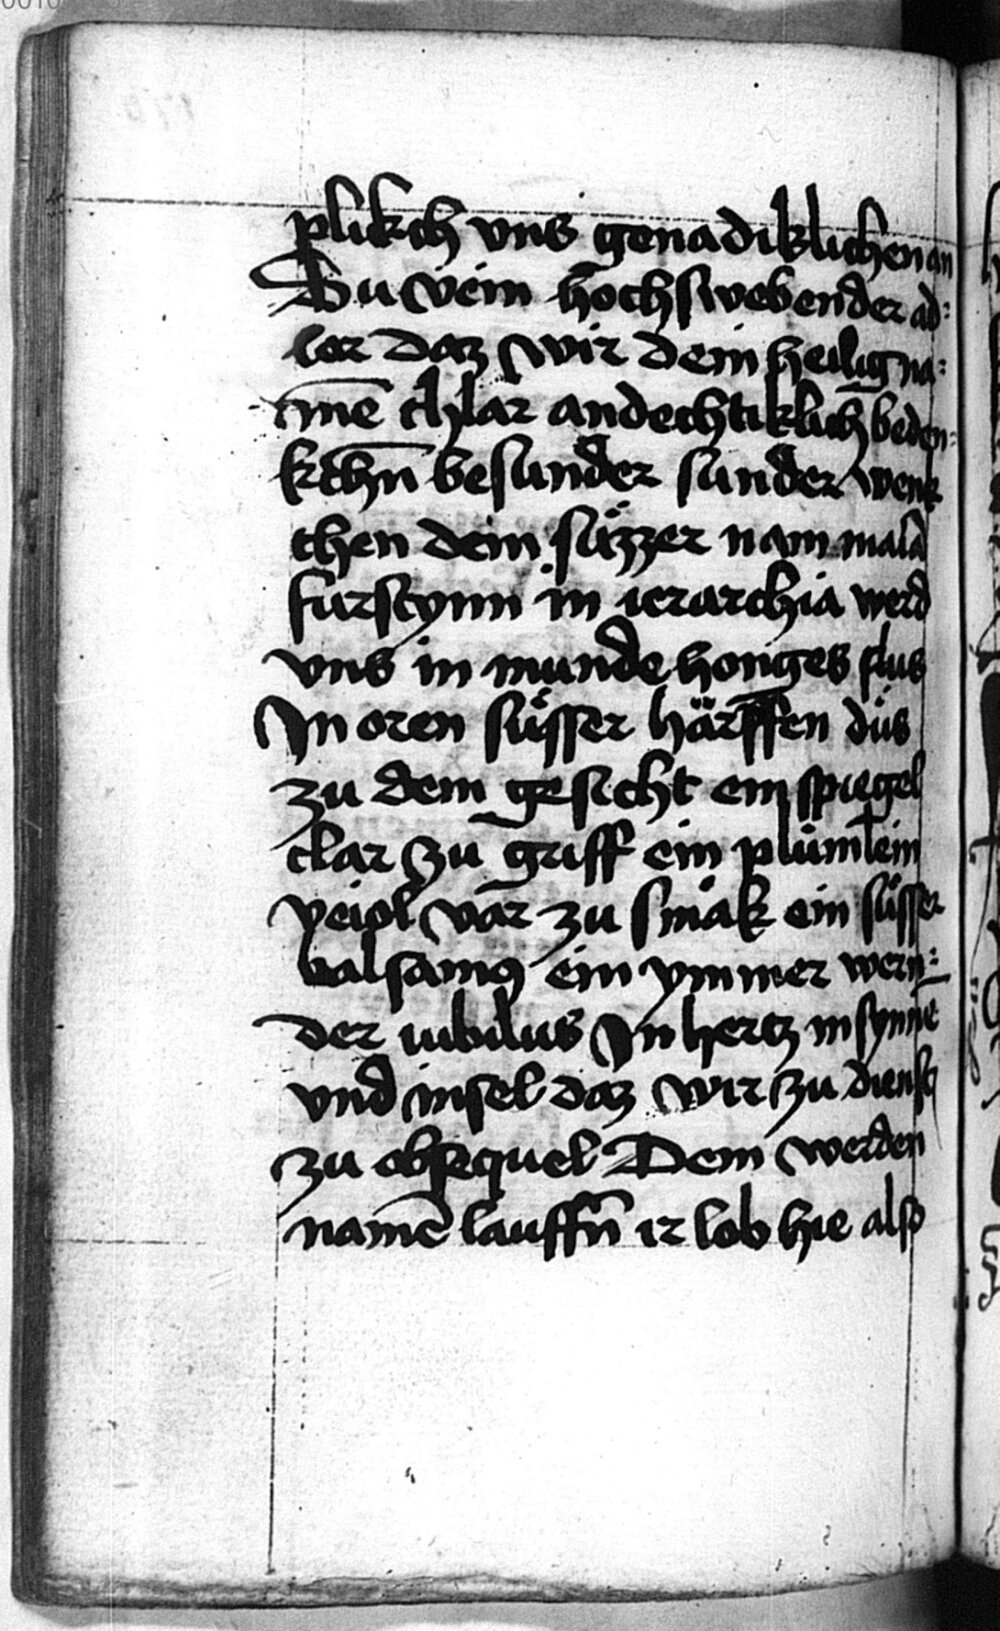 plikch vns genadiklichen an
Du vein hochswebender ad:
ler daz wir dein heilig na:
me͞ chlar andechtiklich̄ beden:
kchn̄ besunder sunder wenk
chen dein süzzer nam mala
furstynn in ierarchia werd
vns in munde honiges flus
In oren süsser härpffen düs
zu dem gesicht ein spiegel
clar zu griff ein plüm̄lein
veiol var zu smak ein süsser
balsamꝯ ein ymmer wern:
der iubilus In hertz in synne
vnd in sel daz wir zu dienst
zu obsequel Dem werden
name͞ lauffn̄ ir lob hie also